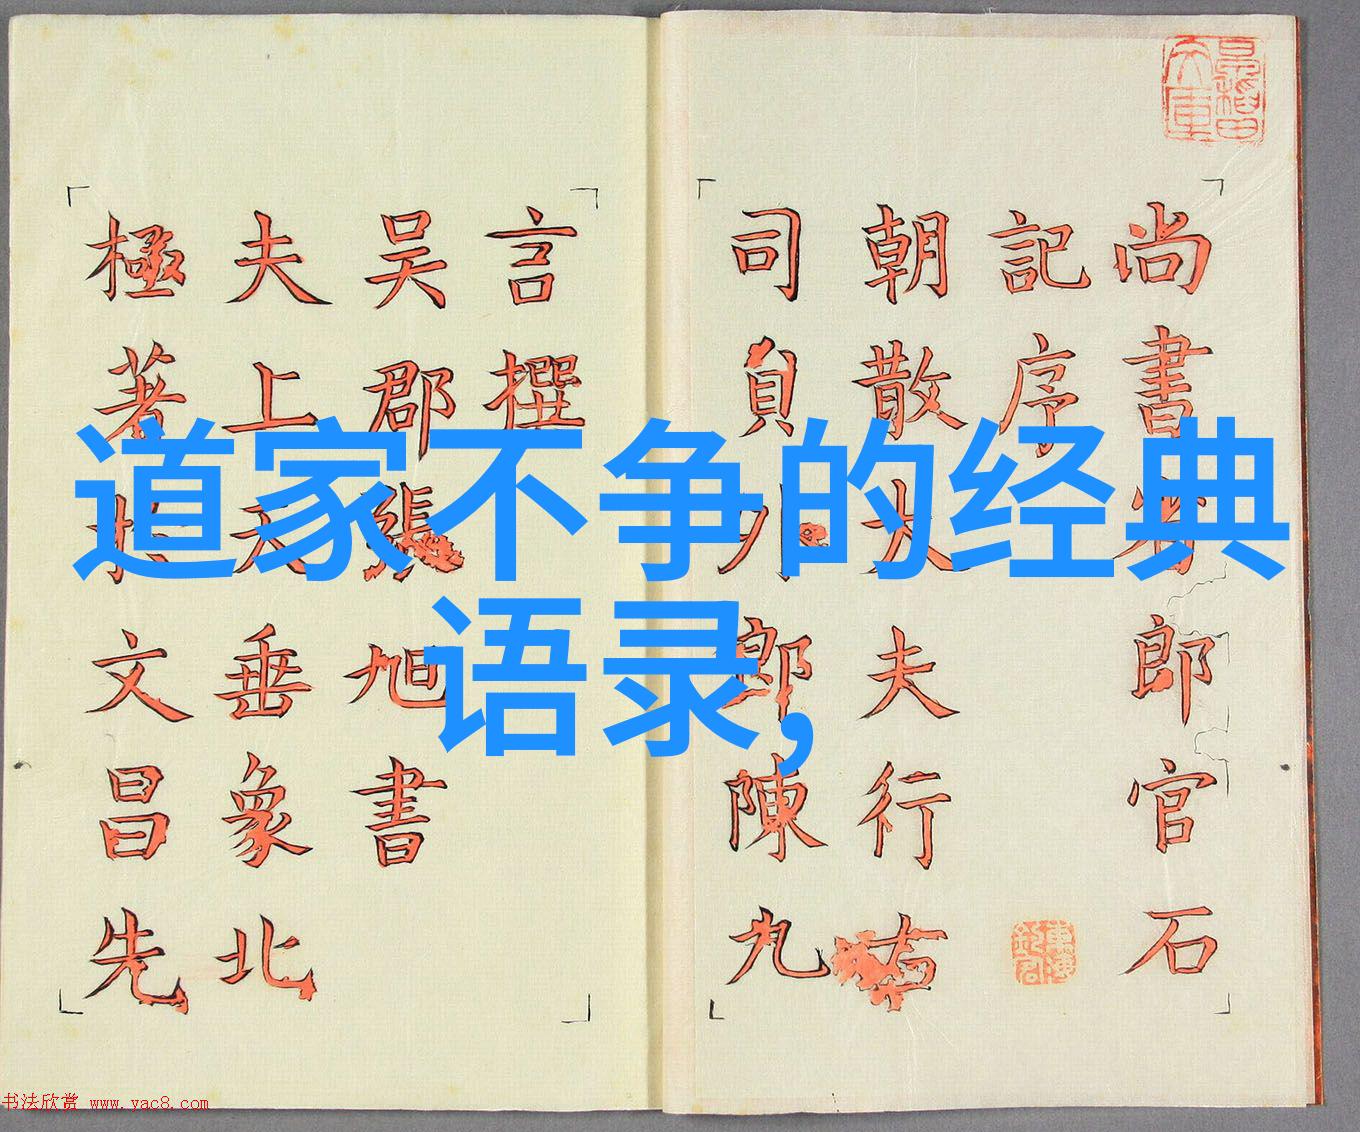 道家不争的经典
语录,
尚書省郎官石
記序
朝散大夫行右
司員外郎陳九
言撰
吳郡張旭書
夫上天垂象北
極著於文昌先
书法欣赏 www.yac8.com